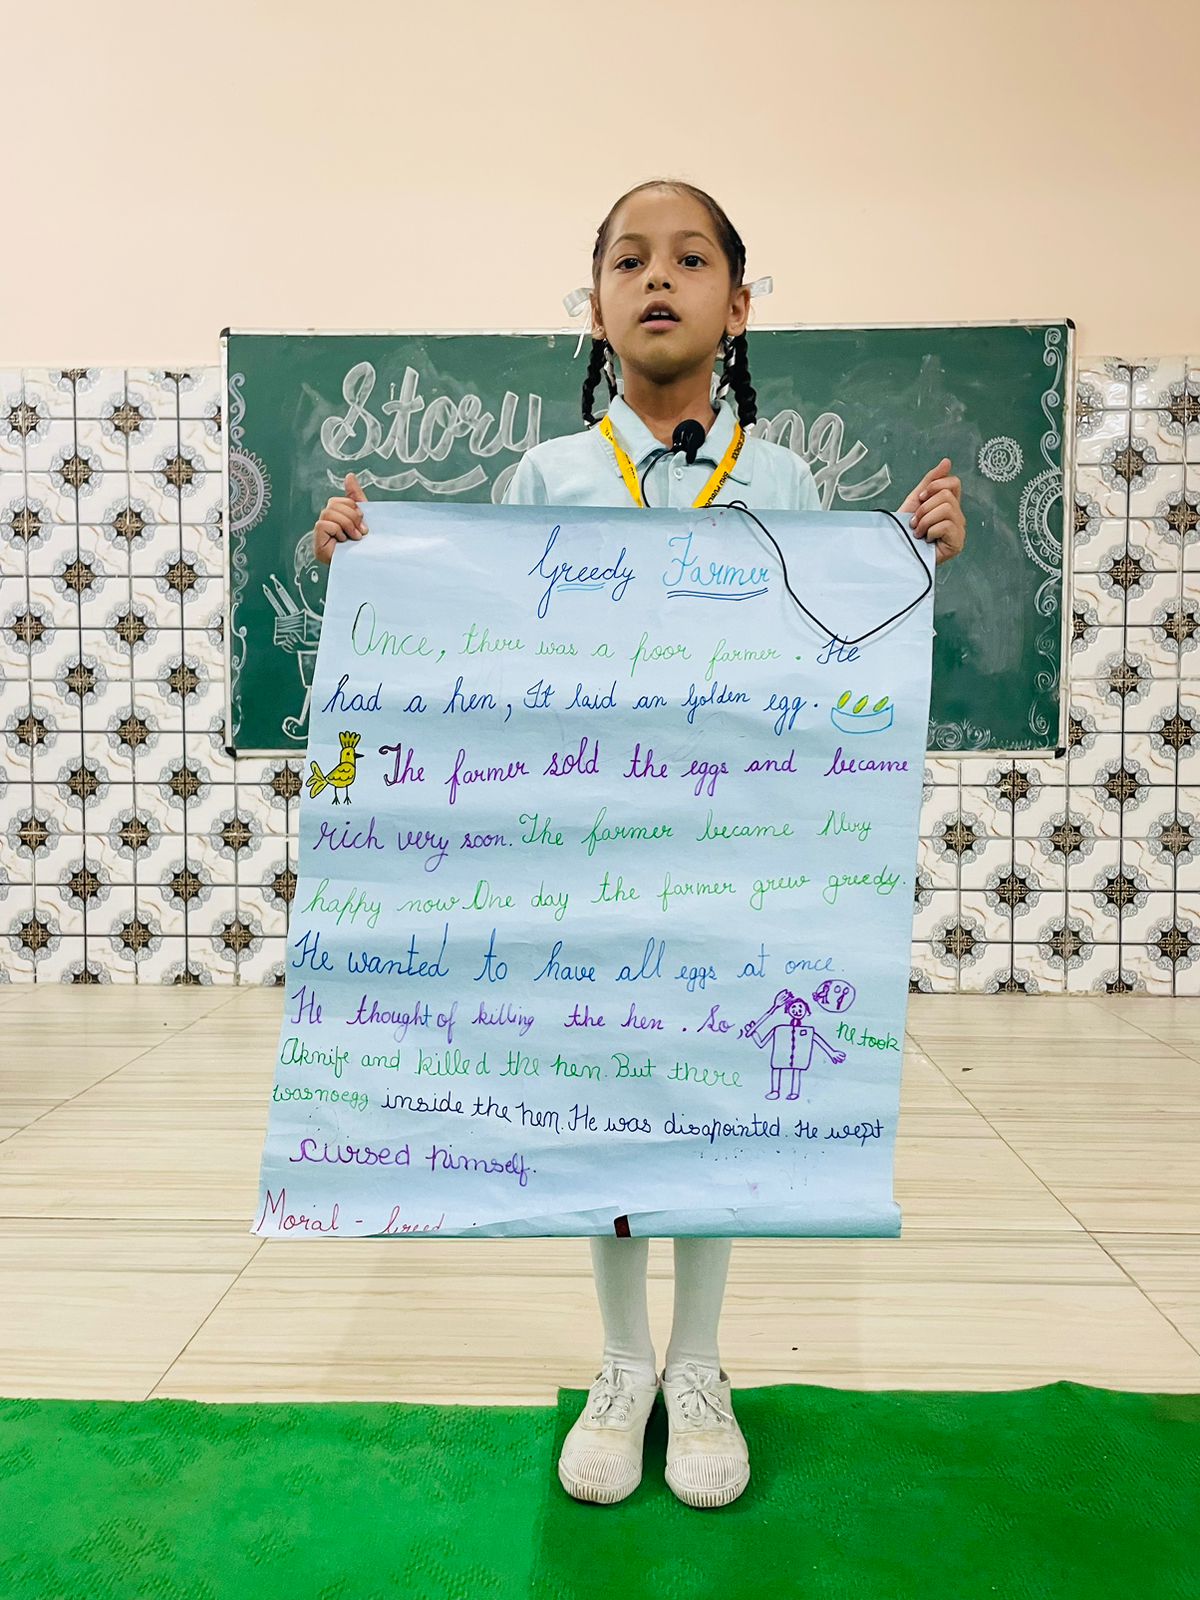 Story
Greedy Farmer
Once, there was a poor farmer. He
had a hen, It laid an Golden egg.
The farmer sold the eggs and became
rich very soon. The farmer became Very
happy now. One day the farmer grew greedy.
He wanted to have all eggs at once.
He thought of killing the hen. So, he took
A knife and killed the hen. But there
was no egg inside the hen. He was disapointed. He wept
cursed himself.
Moral - Greed